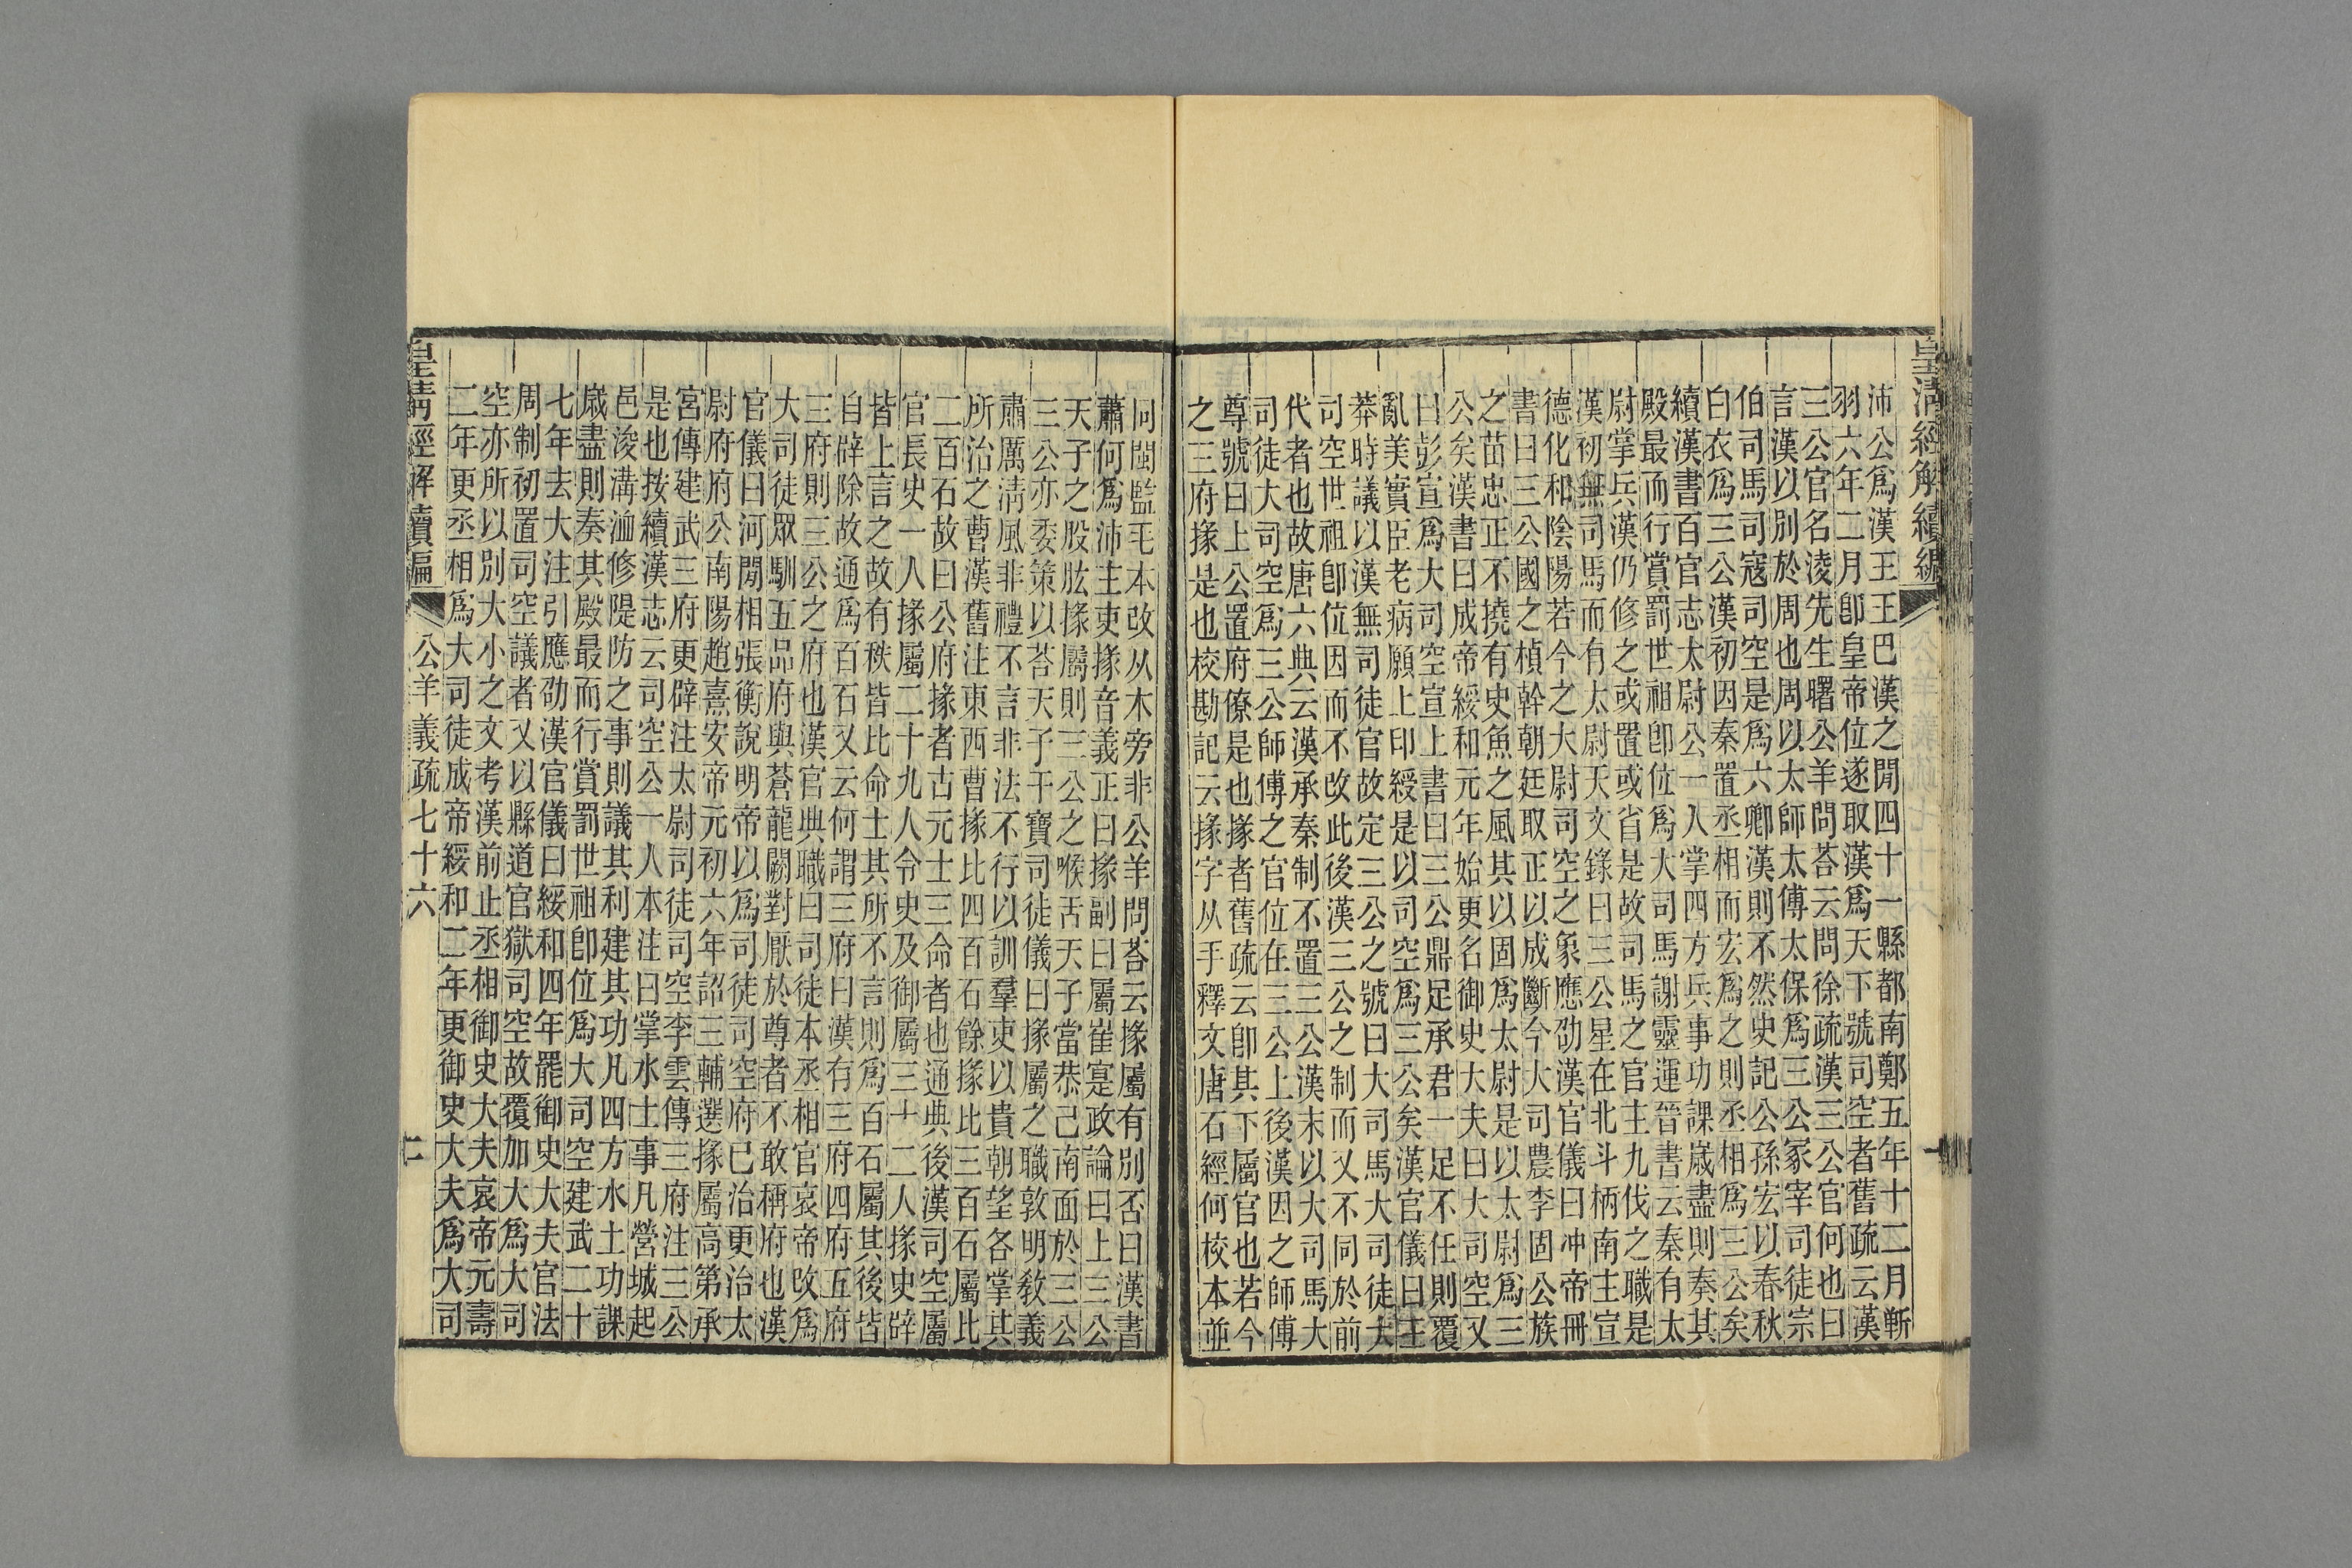 皇清經解續編
沛公爲漢王王巴漢之閒四十一縣都南鄭五年十二月斬
羽六年二月卽皇帝位遂取漢爲天下號司空者舊疏云漢
三公官名淩先生曙公羊問荅云問徐疏漢三公官何也曰
言漢以別於周也周以太師太傅太保爲三公冢宰司徒宗
伯司馬司寇司空是爲六卿漢則不然史記公孫宏以春秋
白衣爲三公漢初因秦置丞相而宏爲之則丞相爲三公矣
續漢書百官志太尉公一人掌四方兵事功課嵗盡則奏其
殿最而行賞罰世祖卽位爲大司馬謝靈運晉書云秦有太
尉掌兵漢仍修之或置或省是故司馬之官主九伐之職是
漢初無司馬而有太尉天文錄曰三公星在北斗柄南主宣
德化和陰陽若今之大尉司空之象應劭漢官儀曰冲帝冊
書曰三公國之楨幹朝廷取正以成斷今大司農李固公族
之苗忠正不撓有史魚之風其以固爲太尉是以太尉爲三
公矣漢書曰成帝綏和元年始更名御史大夫曰大司空又
曰彭宣爲大司空宣上書曰三公鼎足承君一足不任則覆
亂美實臣老病願上印綬是以司空爲三公矣漢官儀曰王
莽時議以漢無司徒官故定三公之號曰大司馬大司徒大
司空世祖卽位因而不改此後漢三公之制而又不同於前
代者也故唐六典云漢承秦制不置三公漢末以大司馬大
司徒大司空爲三公師傅之官位在三公上後漢因之師傅
尊號曰上公置府僚是也掾者舊疏云卽其下屬官也若今
之三府掾是也校勘記云掾字从手釋文唐石經何校本並
同閩監毛本改从木旁非公羊問荅云掾屬有別否曰漢書
蕭何爲沛主吏掾音義正曰掾副曰屬崔寔政論曰上三公
天子之股肱掾屬則三公之喉舌天子當恭己南面於三公
三公亦委策以荅天子干寶司徒儀曰掾屬之職敦明敎義
肅厲淸風非禮不言非法不行以訓羣吏以貴朝望各掌其
所治之曹漢舊注東西曹掾比四百石餘掾比三百石屬比
二百石故曰公府掾者古元士三命者也通典後漢司空屬
官長史一人掾屬二十九人令史及御屬三十二人掾史辟
皆上言之故有秩皆比命士其所不言則爲百石屬其後皆
自辟除故通爲百石又云何謂三府曰漢有三府四府五府
三府則三公之府也漢官典職曰司徒本丞相官哀帝改爲
大司徒眾馴五品府與蒼龍闕對厭於尊者不敢稱府也漢
官儀曰河閒相張衡說明帝以爲司徒司空府已治更治太
尉府府公南陽趙熹安帝元初六年詔三輔選掾屬高第承
宮傳建武三府更辟注太尉司徒司空李雲傳三府注三公
是也按續漢志云司空公一人本注曰掌水土事凡營城起
邑浚溝洫修隄防之事則議其利建其功凡四方水土功課
嵗盡則奏其殿最而行賞罰世祖卽位爲大司空建武二十
七年去大注引應劭漢官儀曰綏和四年罷御史大夫官法
周制初置司空議者又以縣道官獄司空故覆加大爲大司
空亦所以別大小之文考漢前止丞相御史大夫哀帝元壽
二年更丞相爲大司徒成帝綏和二年更御史大夫爲大司
皇淸經解續編
公羊義疏七十六
二